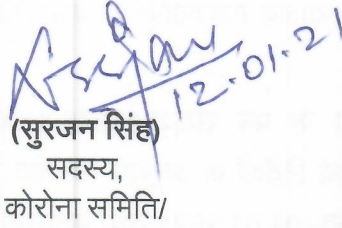 12.01.21
(सुरजन सिंह)
सदस्य,
कोरोना समिति/